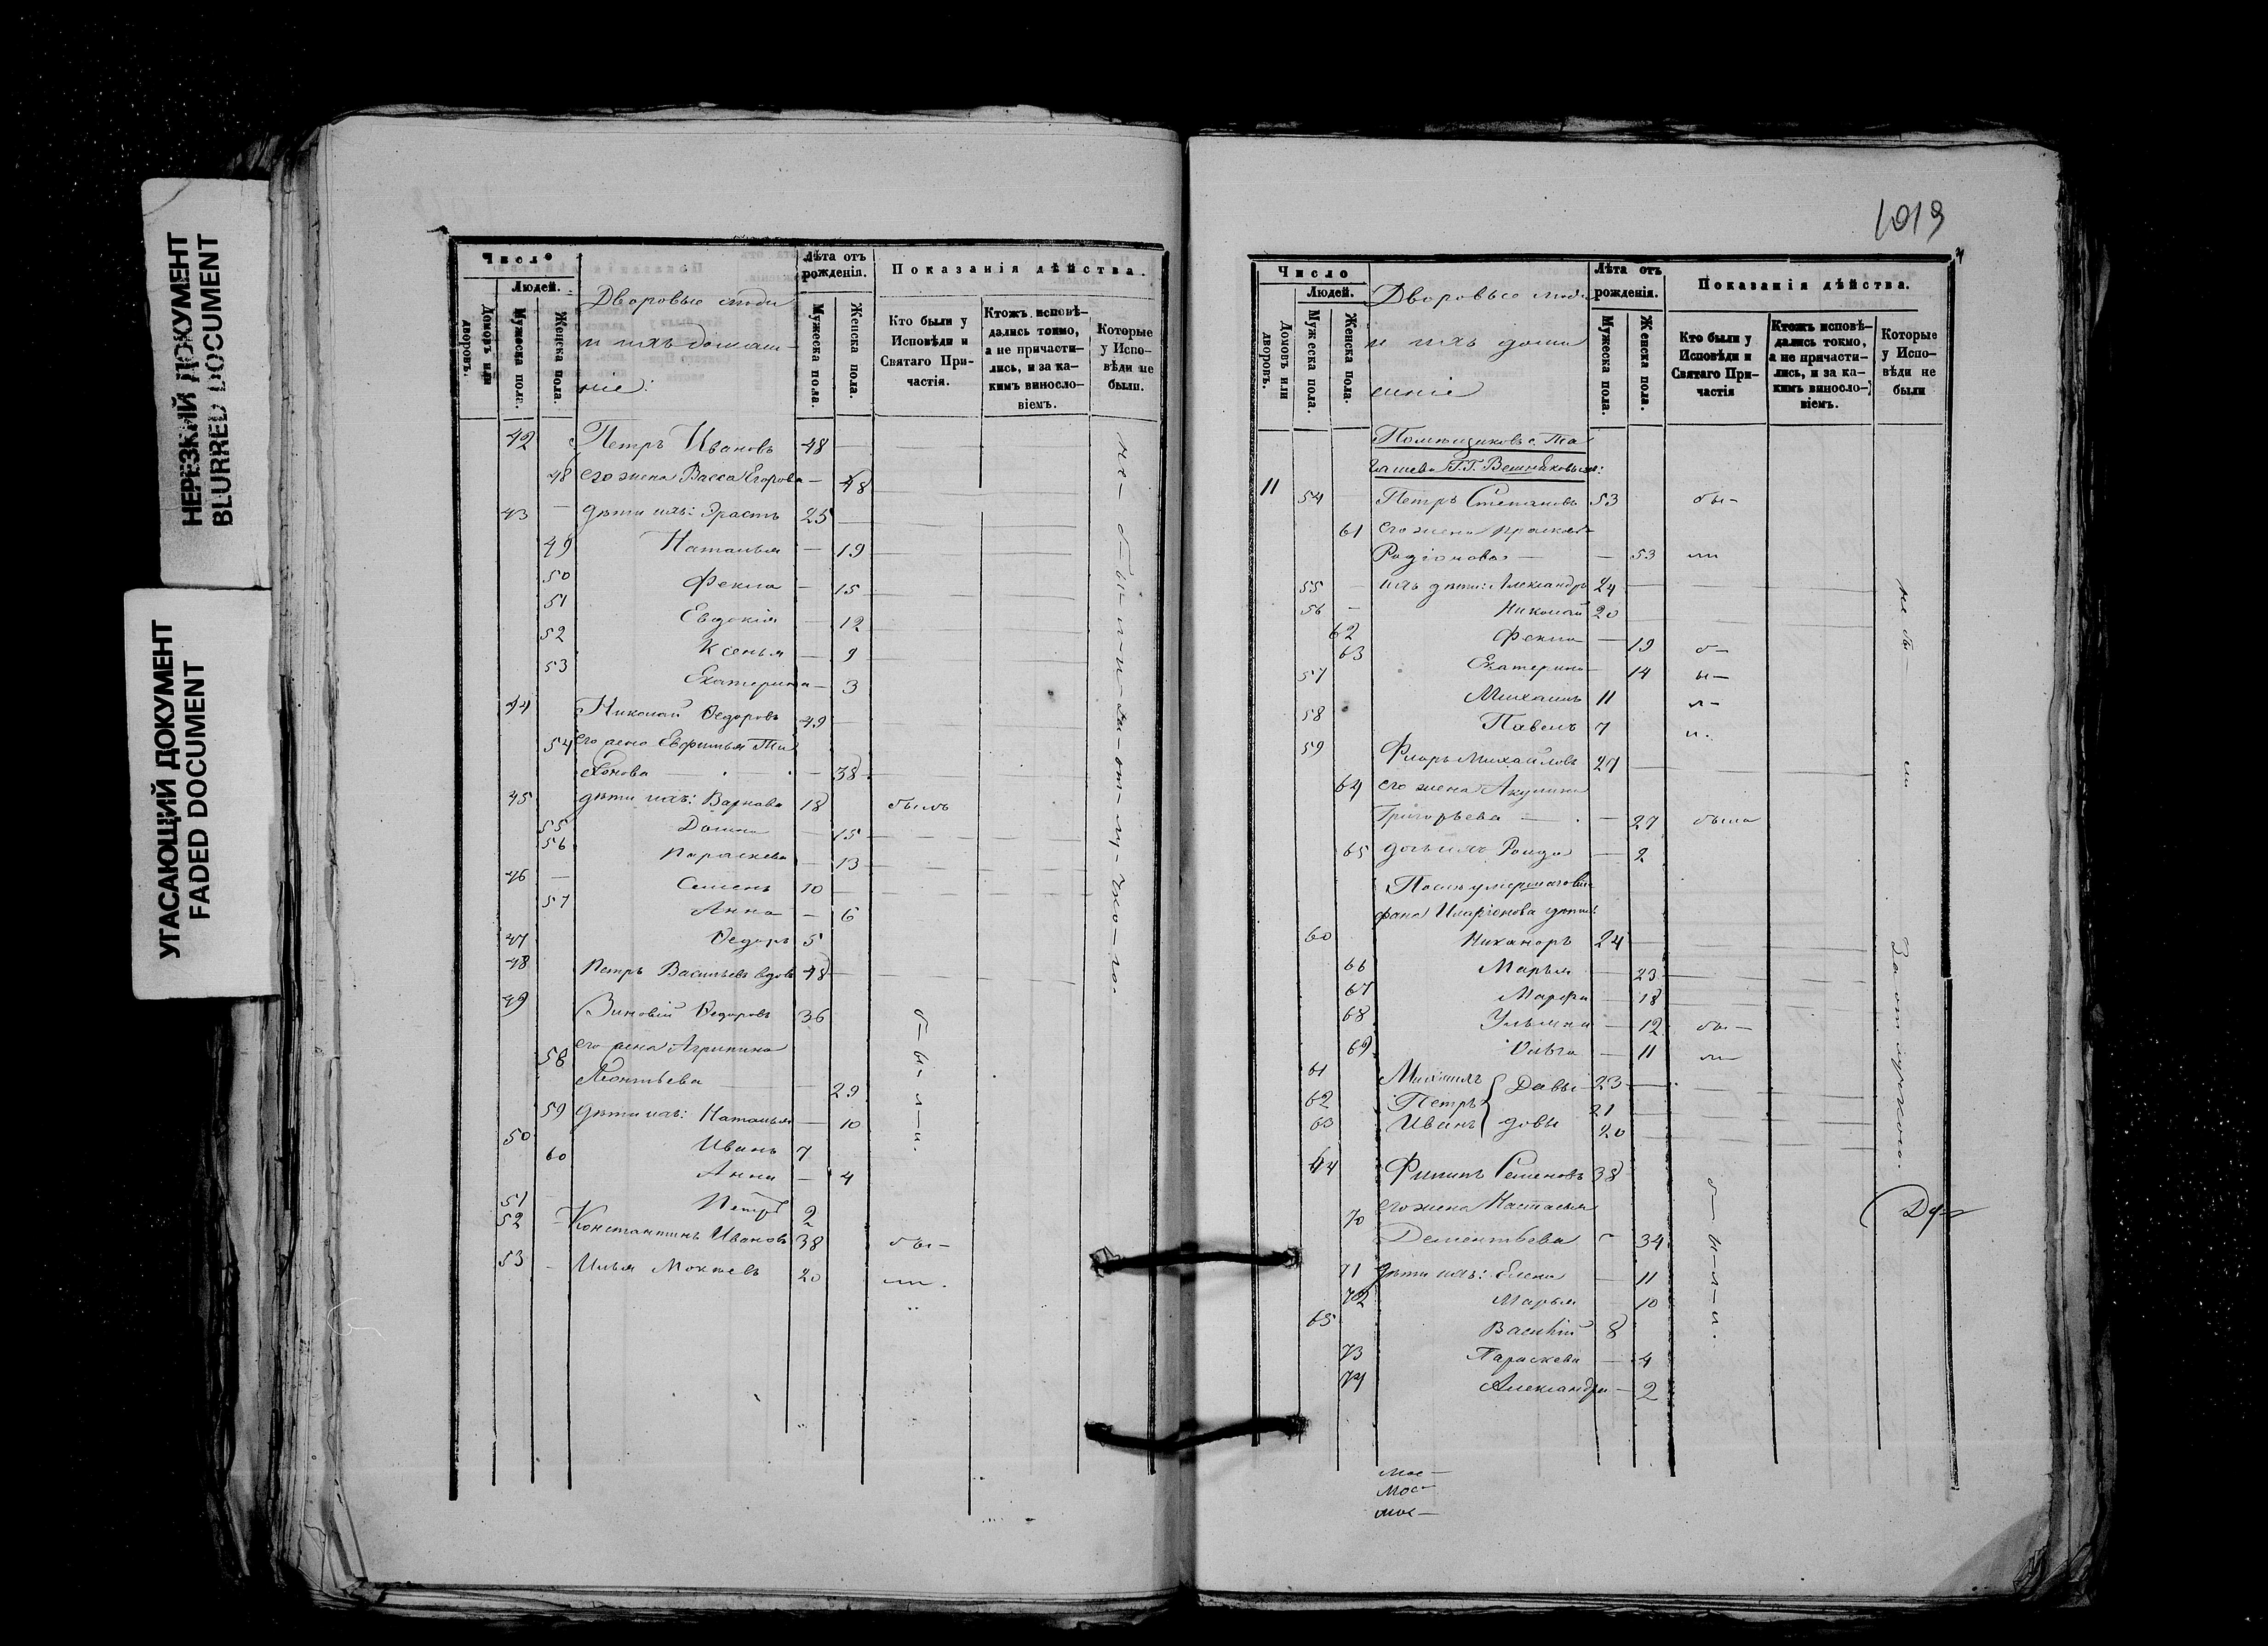 НЕРЕЗКИЙ ДОКУМЕНТ
BLURRED DOCUMENT
УГАСАЮЩИЙ ДОКУМЕНТ
FADED DOCUMENT
Число
Людей.
Домовъ или дворовъ.
Мужеска пола.
Женска пола.
Дворовые люди
и ихъ домаш-
ніе:
Лѣта отъ рожденія.
Мужеска пола.
Женска пола.
Показанія дѣйства.
Кто были у Исповѣди и Святаго При-частія.
Ктожъ исповѣ-дались токмо, а не причасти-лись, и за ка-кимъ винословіемъ.
Которые у Испо-вѣди не были.
42 Петръ Ивановъ 48
48 его жена Васса Егорова — 48
43 — дѣти ихъ: Эрастъ 25
49 Наталья — 19
50 Фекла — 15
51 Евдокія — 12
52 Ксенья — 9
53 Екатерина — 3
44 Николай Ѳедоровъ 49
54 его жена Евфимья Ти
хонова — 38
45 дѣти ихъ: Варнава 18 былъ
55 Домна — 15
56 Параскева — 13
46 — Семенъ 10
57 Анна — 6
47 Ѳедоръ 5
48 Петръ Васильевъ вдовъ 48
49 Зиновій Ѳедоровъ 36
58 его жена Агрипина
Леонтьева — 29
59 дѣти ихъ: Наталья — 10
50 Иванъ 7
60 Анна — 4
51 Петръ 2
52 Константинъ Ивановъ 38 бы-
53 — Илья Мокѣевъ 20 ли.
б-ы-л-и.
не-бы-ли-за-от-лу-чко-ю.
1019
Число
Людей.
Домовъ или дворовъ.
Мужеска пола.
Женска пола.
Дворовые люди
и ихъ дома
шніе
Лѣта отъ рожденія.
Мужеска пола.
Женска пола.
Показанія дѣйства.
Кто были у Исповѣди и Святаго При-частія
Ктожъ исповѣ-дались токмо, а не причасти-лись, и за ка-кимъ винословіемъ.
Которые у Испо-вѣди не были
Помѣщиковъ с. Та
гашева Г.Г.
11 54 Петръ Степановъ 53 бы-
61 его жена Прасков
Родіонова — 53 ли
55 — ихъ дѣти: Александръ 24
56 — Николай 20
62 Фекла — 19 б-
63 Екатерина — 14 ы-
57 Михаилъ 11 л-
58 Павелъ 7 и.
59 Флоръ Михайловъ 27
64 его жена Акулина
Григорьева — 27 была
65 дочь ихъ — 2
Послѣ умершаго
Иларіонова дѣти:
60 Никаноръ 24
66 Марья — 23
67 Марфа — 18
68 Ульяна — 12 бы-
69 Ольга — 11 ли
61 Михаилъ Давы 23
62 Петръ 21
63 Иванъ довы 20
64 Филипъ Семеновъ 38
70 его жена Настасья
Дементьева — 34
71 дѣти ихъ: Елена — 11
72 Марья 10
65 Василій 8
73 Параскева — 4
74 Александра — 2
б-ы-л-и.
не бы- ли За отлучкою.